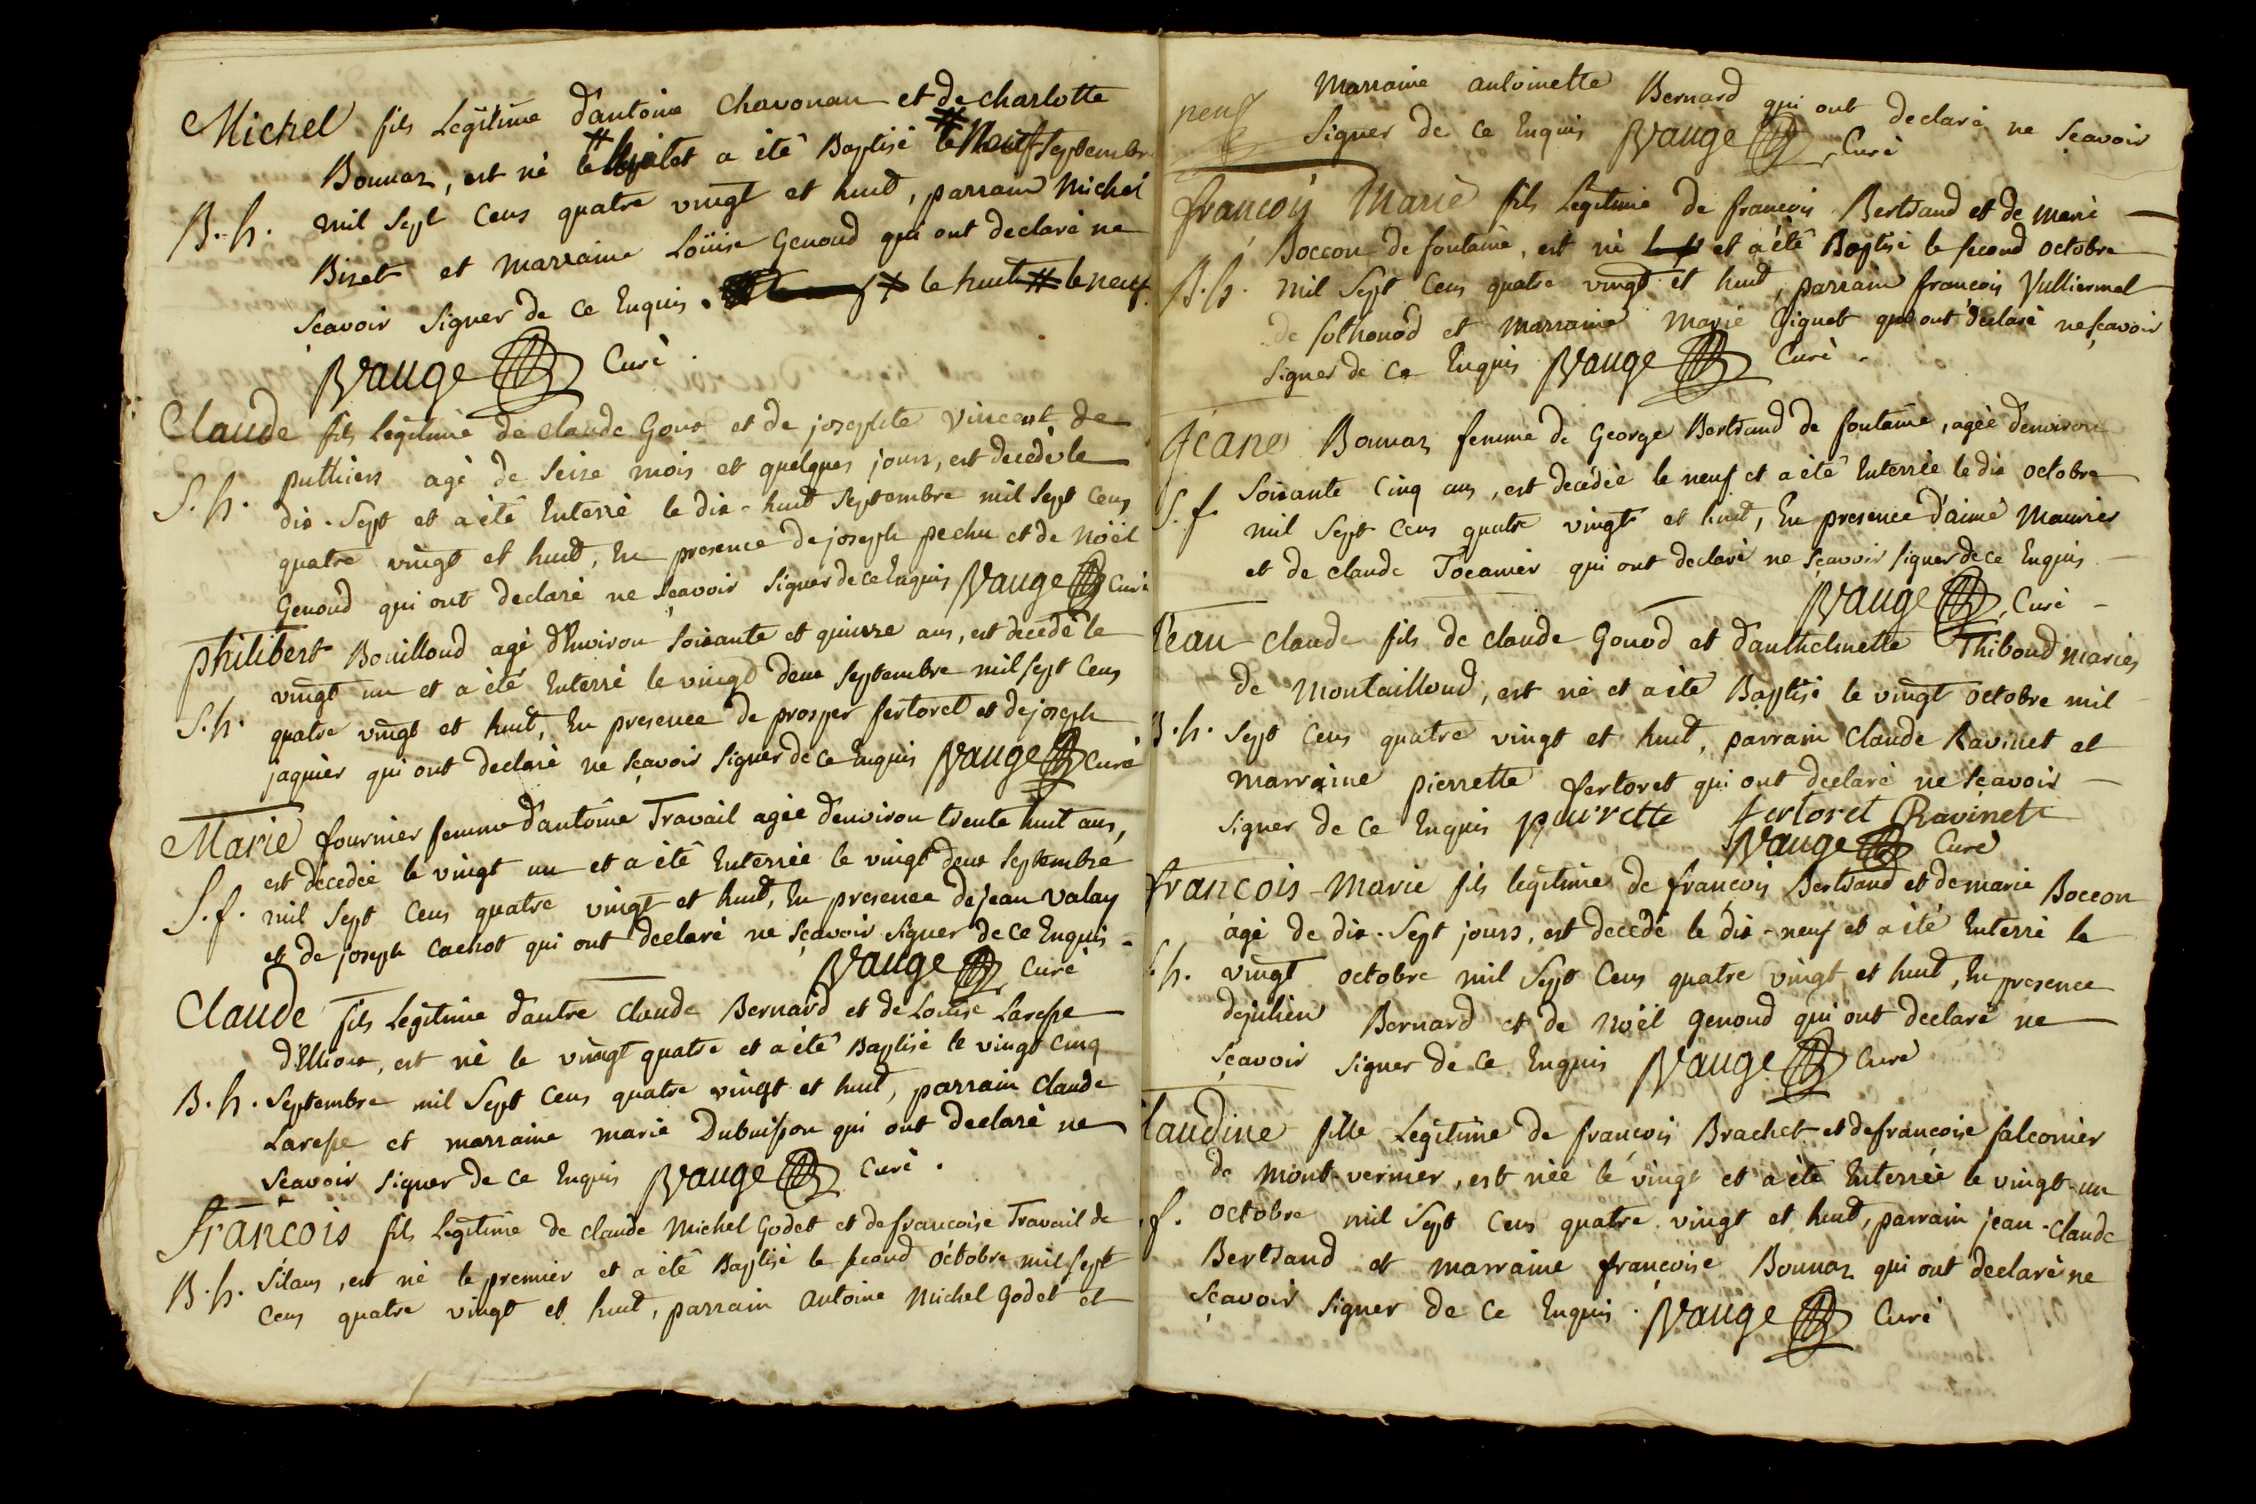 Michel fils Legitime d'antoine Chavonan et de charlotte
Bonnaz, est né le et a été Baptisé le Neuf Septembre
B. h. mil Sept Cens quatre vingt et huit, parrain Michel
Bizet et Marraine Loüise Genoud qui ont declaré ne
sçavoir signer de ce Enquis. # le huit # le neuf.
Vauge Curé.
Claude fils Legitime de claude Gout et de josephte Vincent de
puthiers agé de seize mois et quelques jours, est decedé le
S. h. dix-Sept et a été Enterré le dix-huit Septembre mil Sept Cens
quatre vingt et huit, En presence de joseph pechu et de Noël
Genoud qui ont declaré ne sçavoir signer de ce Enquis Vauge Curé
philibert Bouilloud agé d'Environ soixante et quinze ans, est decedé le
vingt un et a été Enterré le vingt deux Septembre mil sept Cens
S. h. quatre vingt et huit, En presence de prosper fertoret et de joseph
jaquier qui ont declaré ne sçavoir signer de ce Enquis Vauge Curé
Marie fournier femme d'antoine Travail agée d'environ trente huit ans,
est décedée le vingt un et a été Enterrée le vingt deux Septembre
S. f. mil Sept Cens quatre vingt et huit, En presence de jean valay
et de joseph Cachot qui ont declaré ne sçavoir signer de ce Enquis -
Vauge Curé
Claude fils Legitime d'autre Claude Bernard et de Louise Laresse
d'Illioux, est né le vingt quatre et a été Baptisé le vingt cinq
B. h. Septembre mil Sept Cens quatre vingt et huit, parrain Claude
Laresse et marraine marie Dubuisson qui ont declaré ne
sçavoir signer de ce Enquis Vauge Curé.
françois fils Legitime de claude Michel Godet et de francoise Travail de
B. h. Silans, est né le premier et a été Baptisé le second Octobre mil sept
Cens quatre vingt et huit, parrain Antoine Michel Godet et
Marraine antoinette Bernard qui ont declaré ne sçavoir
neuf signer de ce Enquis Vauge Curé
françois Marie fils Legitime de francois Bertrand et de Marie
Boccon de fontaine, est né et a été Baptisé le second octobre
B. h. mil Sept Cens quatre vingt et huit, parrain francois Vulliermet
de sothonod et Marraine Marie Giguet qui ont déclaré ne sçavoir
signer de ce Enquis Vauge Curé.
jeane Bonnaz femme de George Bertrand de fontaine, agée d'environ
Soixante Cinq ans, est decédée le neuf et a été Enterrée le dix octobre
S. f. mil Sept Cens quatre vingt et huit, En presence d'aimé Maurier
et de claude Tocanier qui ont declaré ne sçavoir signer de ce Enquis
Vauge Curé -
jean claude fils de claude Gonod et d'anthelmette Thiboud mariés
de Montailloud, est né et a été Baptisé le vingt octobre mil
B. h. Sept Cens quatre vingt et huit, parrain Claude Ravinet et
marraine pierrette fertoret qui ont declaré ne sçavoir -
signer de ce Enquis peirrette fertoret Ravinet
Vauge Curé
francois-Marie fils legitime de françois Bertrand et de marie Boccon
ágé de dix-Sept jours, est decédé le dix-neuf et a été Enterré le
S. h. vingt octobre mil Sept Cens quatre vingt et huit, En presence
de julien Bernard et de Noël genoud qui ont declaré ne
sçavoir signer de ce Enquis Vauge Curé
Claudine fille Legitime de françois Brachet et de francoise falconier
de Mont-vernier, est née le vingt et a été Enterrée le vingt-un
f. octobre mil Sept Cens quatre vingt et huit, parrain jean-claude
Bertrand et marraine françoise Bonnaz qui ont declaré ne
Sçavoir signer de ce Enquis. Vauge Curé